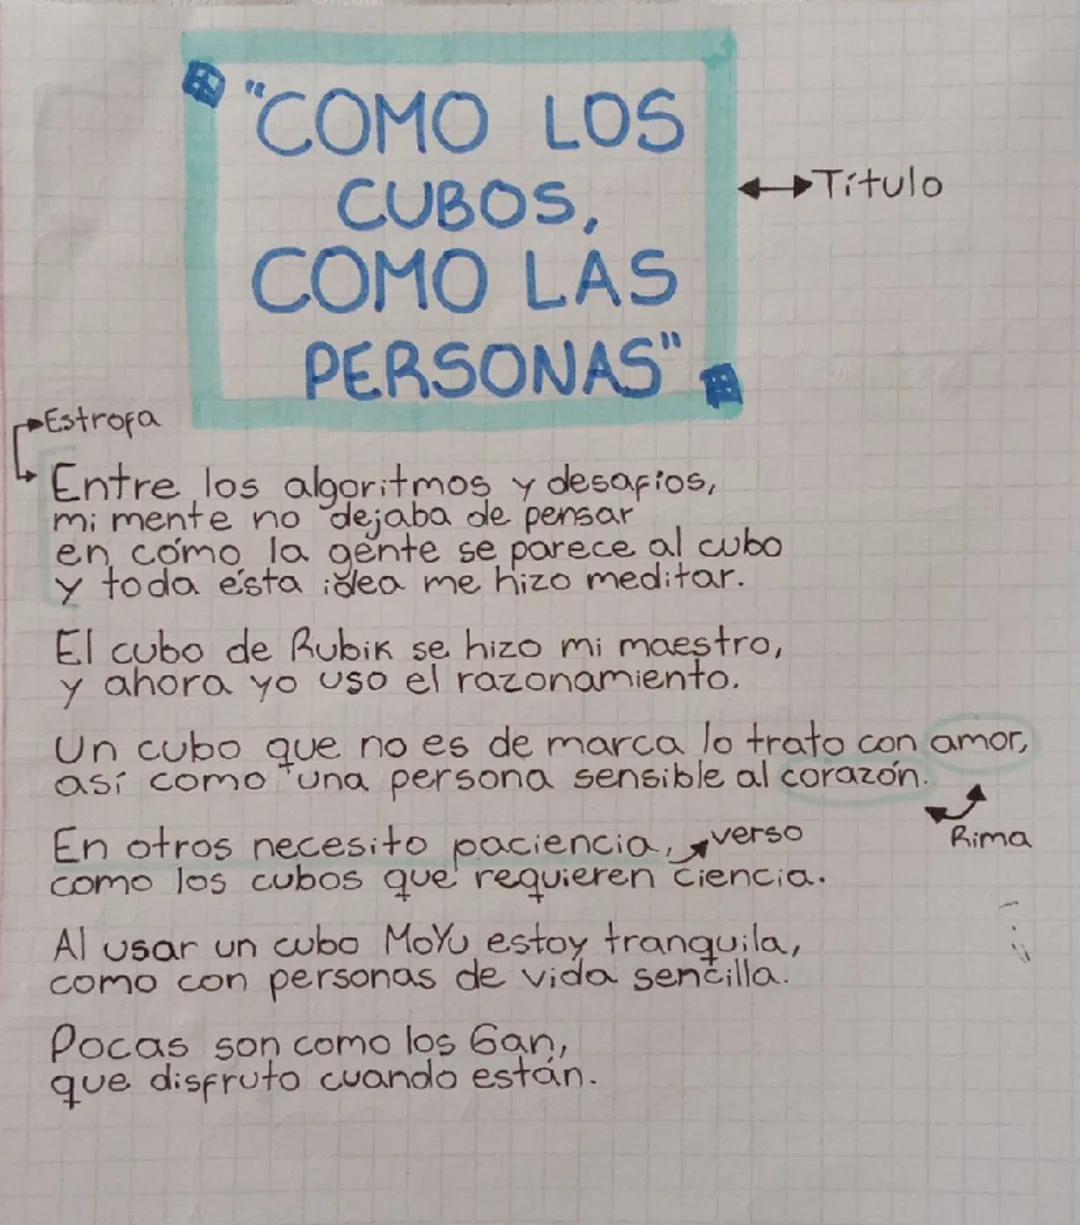 "COMO LOS
CUBOS,
COMO LAS
PERSONAS"
Título
Estrofa
Entre los algoritmos y desafios,
mi mente no dejaba de pensar
en cómo la gente se parece al cubo
y toda esta idea me hizo meditar.
El cubo de Rubik se hizo mi maestro,
y ahora yo uso el razonamiento.
Un cubo que no es de marca lo trato con amor,
así como una persona sensible al corazón.
Rima
En otros necesito paciencia, verso
como los cubos que requieren ciencia.
Al usar un cubo MoYu estoy tranquila,
como con personas de vida sencilla.
Pocas son como los Gan,
que disfruto cuando están.